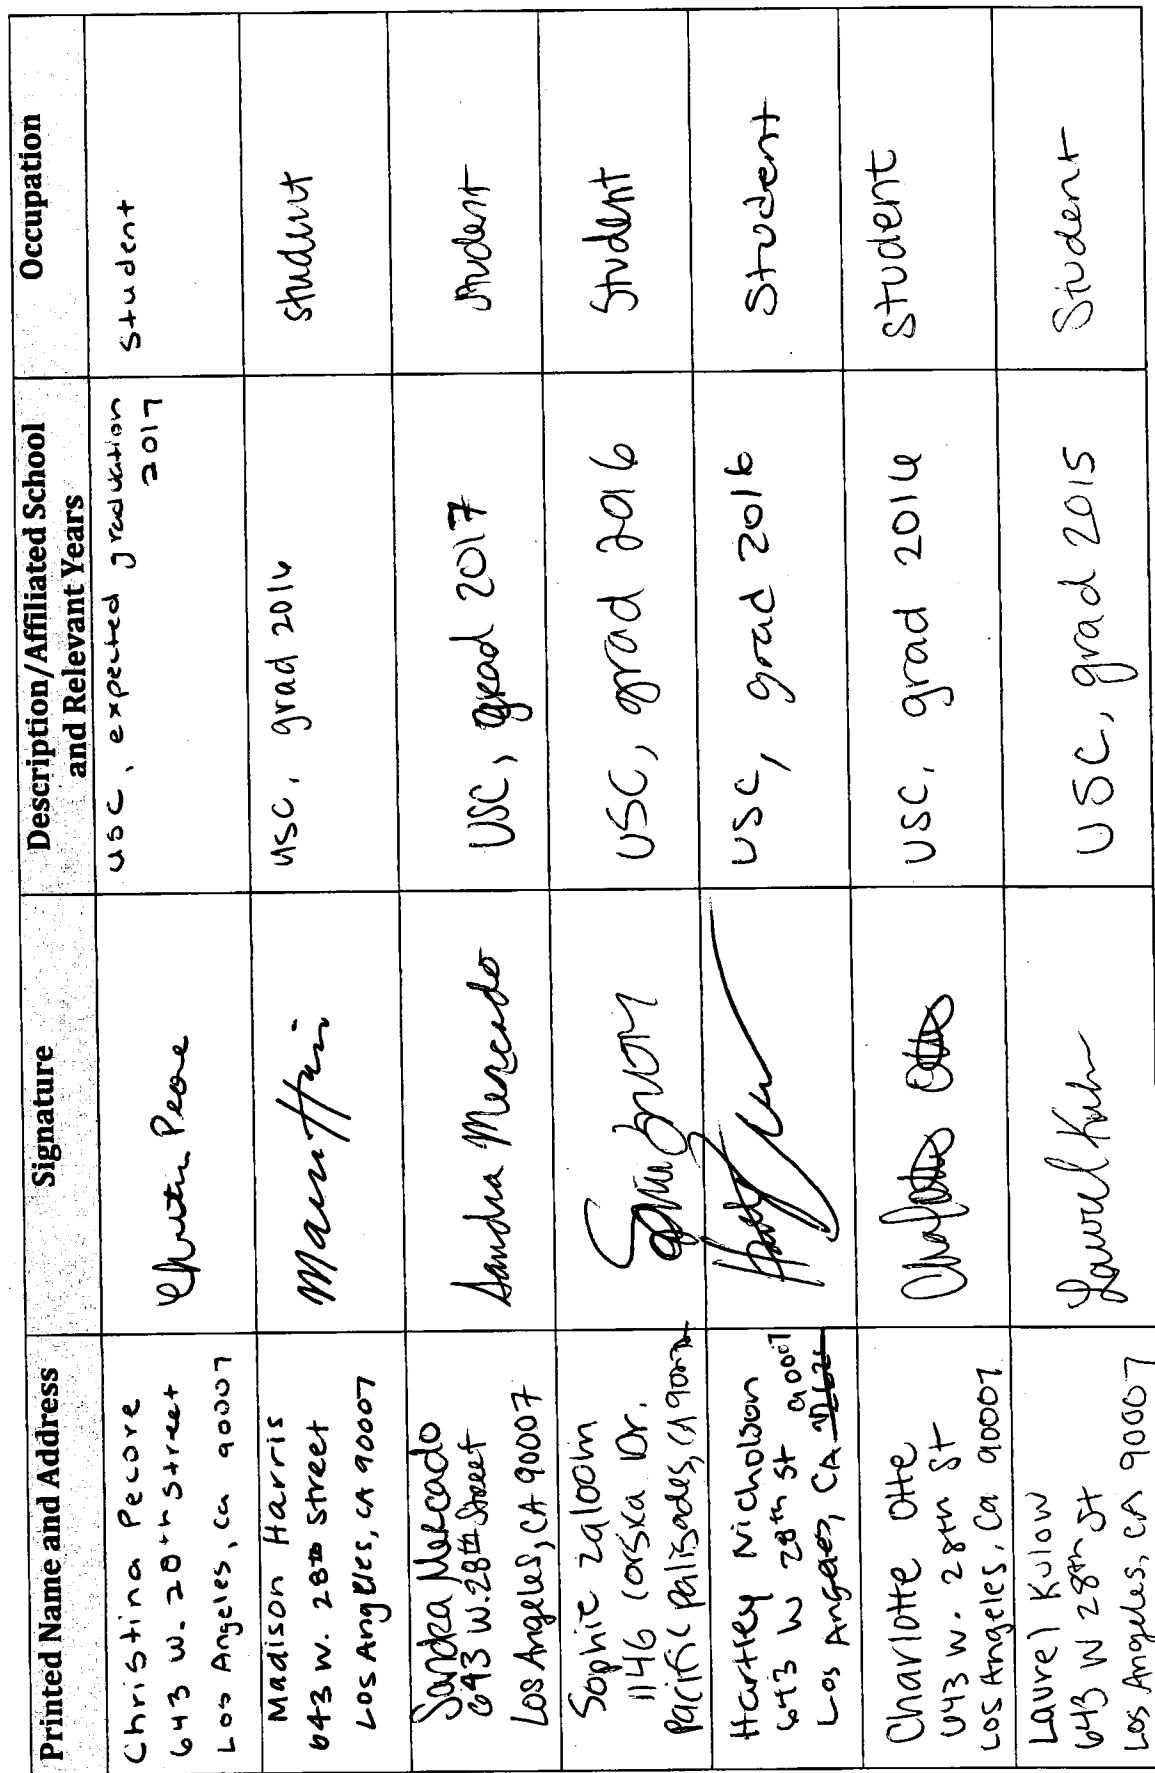 Printed Name and Address
Signature
Description/Affiliated School
and Relevant Years
Occupation
Christina Pecore
643 W. 28th street
Los Angeles, ca 90007
Christin Pecore
usc, expected graduation
2017
student
Madison Harris
643 W. 28th Street
Los Angeles, CA 90007
usc, grad 2016
student
Sandra Mercado
643 W. 28th Street
Los Angeles, CA 90007
Sandra Mercado
USC, grad 2017
student
Sophie Zaloom
1146 Corska Dr.
Pacific Palisades, CA
USC, grad 2016
Student
Hartley Nicholson
643 W 28th St
90007
Los Angeles, CA
USC, grad 2016
Student
Charlotte Otte
643 W. 28th St
Los Angeles, Ca 90007
Charlotte Otte
USC, grad 2016
student
Laurel Kulow
643 W 28th St
Los Angeles, CA 90007
Laurel
USC, grad 2015
Student